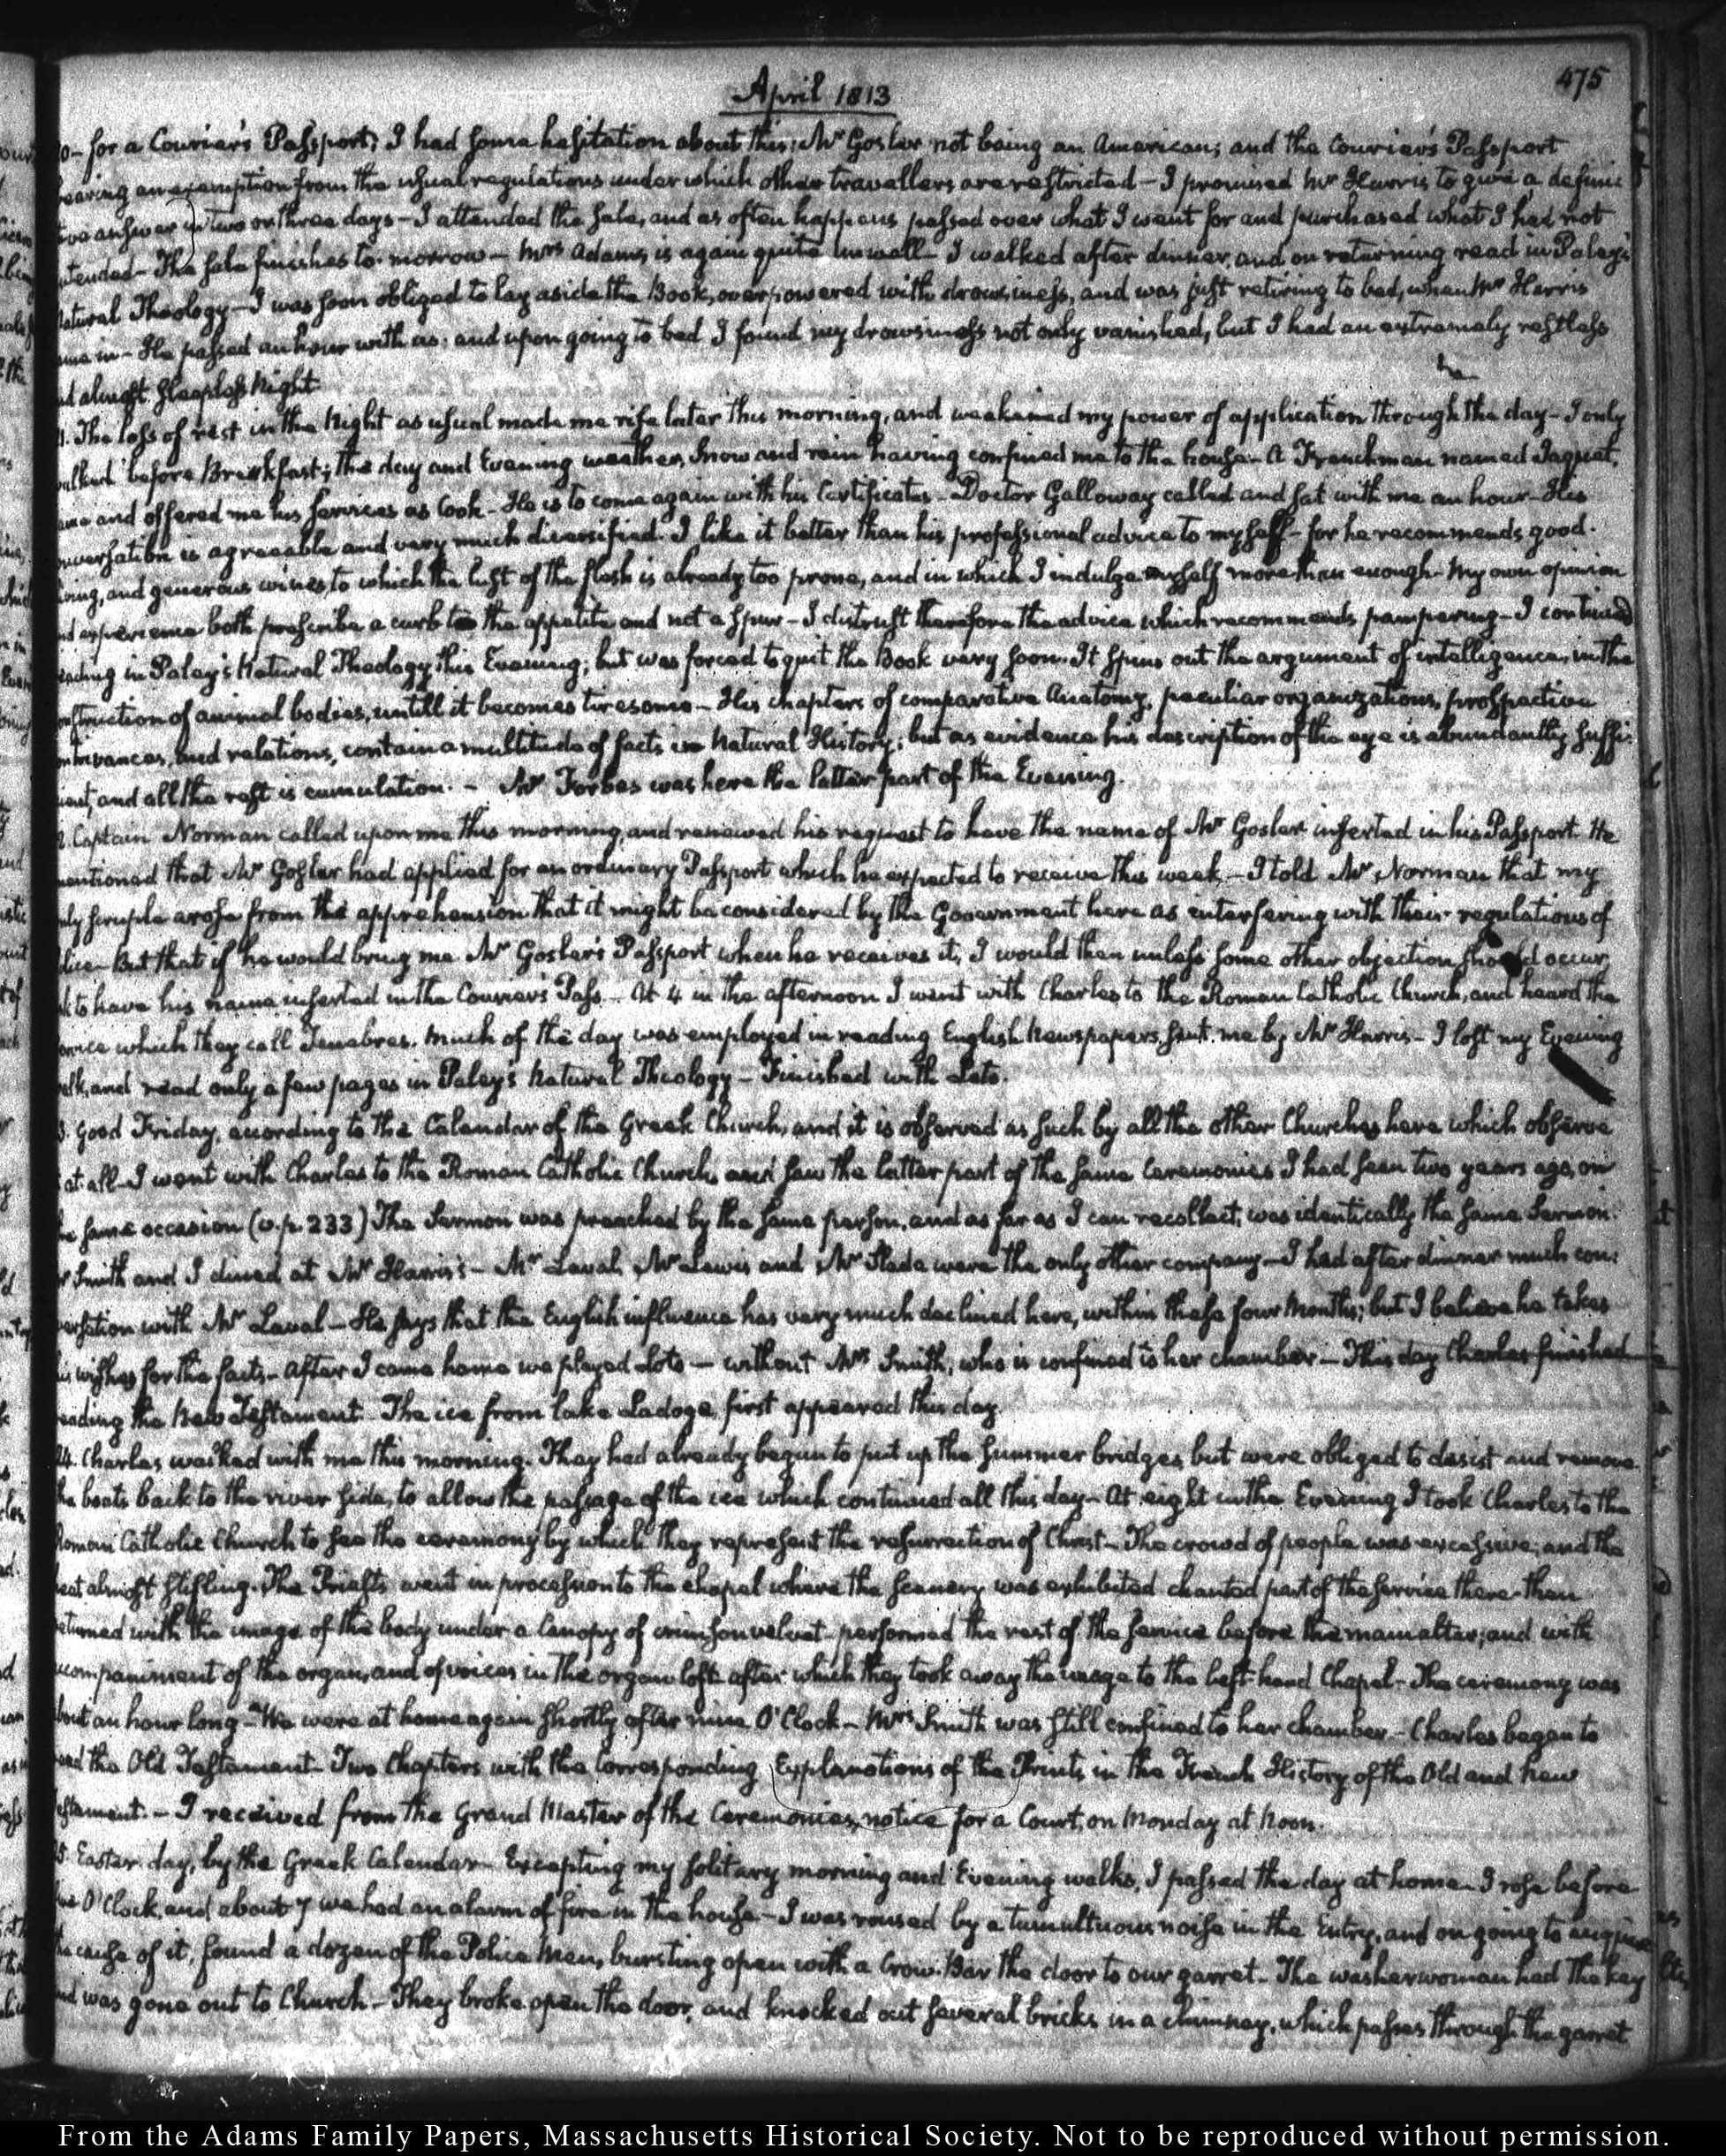 April 1813
475
for a Courier's Passport; I had some hesitation about this: Mr Gosler not being an American; and the Courier's Passport
bearing an exemption from the usual regulations under which other travellers are restricted – I promised Mr Harris to give a defini-
tive answer in two or three days – I attended the sale, and as often happens passed over what I went for and purchased what I had not
intended – The sale finishes to-morrow – Mrs Adams is again quite unwell – I walked after dinner, and on returning read in Paley's
Natural Theology – I was soon obliged to lay aside the Book, overpowered with drowsiness, and was just retiring to bed, when Mr Harris
came in – He passed an hour with us; and upon going to bed I found my drowsiness not only vanished, but I had an extremely restless
and almost sleepless Night
The loss of rest in the Night as usual made me rise later this morning, and weakened my power of application through the day – I only
walked before Breakfast; the day and Evening weather, Snow and rain having confined me to the house – A Frenchman named Jaquet,
came and offered me his services as Cook – He is to come again with his Certificates – Doctor Galloway called and sat with me an hour – His
conversation is agreeable and very much diversified. I like it better than his professional advice to myself – for he recommends good
living, and generous wines, to which the lust of the flesh is already too prone, and in which I indulge myself more than enough – My own opinion
and experience both prescribe a curb to the appetite and not a spur – I distrust therefore the advice which recommends pampering – I continued
reading in Paley's Natural Theology this Evening; but was forced to quit the Book very soon. It spins out the argument of intelligence, in the
construction of animal bodies, untill it becomes tiresome – His chapters of comparative Anatomy, peculiar organizations, prospective
contrivances, and relations, contain a multitude of facts in Natural History; but as evidence his description of the eye is abundantly suffi-
cient, and all the rest is cumulation. – Mr Forbes was here the latter part of the Evening.
Captain Norman called upon me this morning, and renewed his request to have the name of Mr Gosler inserted in his Passport. He
mentioned that Mr Gosler had applied for an ordinary Passport which he expected to receive this week – I told Mr Norman that my
only scruple arose from the apprehension that it might be considered by the Government here as interfering with their regulations of
Police – But that if he would bring me Mr Gosler's Passport when he receives it, I would then unless some other objection should occur,
to have his name inserted in the Courier's Pass – At 4 in the afternoon I went with Charles to the Roman Catholic Church, and heard the
service which they call Tenebres. Much of the day was employed in reading English Newspapers, sent me by Mr Harris – I lost my Evening
walk, and read only a few pages in Paley's Natural Theology – Finished with Loto.
Good Friday, according to the Calendar of the Greek Church, and it is observed as such by all the other Churches here which observe
it at all – I went with Charles to the Roman Catholic Church, and saw the latter part of the same Ceremonies I had seen two years ago, on
the same occasion (v. p. 233) The Sermon was preached by the same person, and as far as I can recollect, was identically the same Sermon.
Mr Smith and I dined at Mr Harris's – Mr Laval, Mr Lewis and Mr Slade were the only other company – I had after dinner much con-
versation with Mr Laval – He says that the English influence has very much declined here, within these four Months; but I believe he takes
his wishes for the facts – After I came home we played Loto – without Mrs Smith, who is confined to her chamber – This day Charles finished
reading the New Testament. The ice from lake Ladoga first appeared this day.
24. Charles walked with me this morning. They had already begun to put up the Summer bridges, but were obliged to desist and remove
the boats back to the river side, to allow the passage of the ice which continued all this day – At eight in the Evening I took Charles to the
Roman Catholic Church to see the ceremony by which they represent the resurrection of Christ – The crowd of people was excessive; and the
heat almost stifling. The Priests went in procession to the chapel where the Scenery was exhibited chanted part of the service there – then
returned with the image of the body under a Canopy of crimson velvet – performed the rest of the service before the main altar; and with
accompaniment of the organ, and of voices in the organ loft after which they took away the image to the left hand Chapel – The ceremony was
about an hour long – We were at home again shortly after nine O'Clock – Mrs Smith was still confined to her chamber – Charles began to
read the Old Testament – Two Chapters with the Corresponding Explanations of the Prints, in the French History of the Old and New
Testament. – I received from the Grand Master of the Ceremonies, notice for a Court, on Monday at Noon.
25. Easter day, by the Greek Calendar – Excepting my solitary morning and Evening walks, I passed the day at home – I rose before
O'Clock, and about 7 we had an alarm of fire in the house – I was roused by a tumultuous noise in the Entry, and on going to enquire
the cause of it, found a dozen of the Police Men, bursting open with a Crow-Bar the door to our garret – The washerwoman had the key
and was gone out to Church – They broke open the door, and knocked out several bricks in a chimney, which passes through the garret
From the Adams Family Papers, Massachusetts Historical Society. Not to be reproduced without permission.